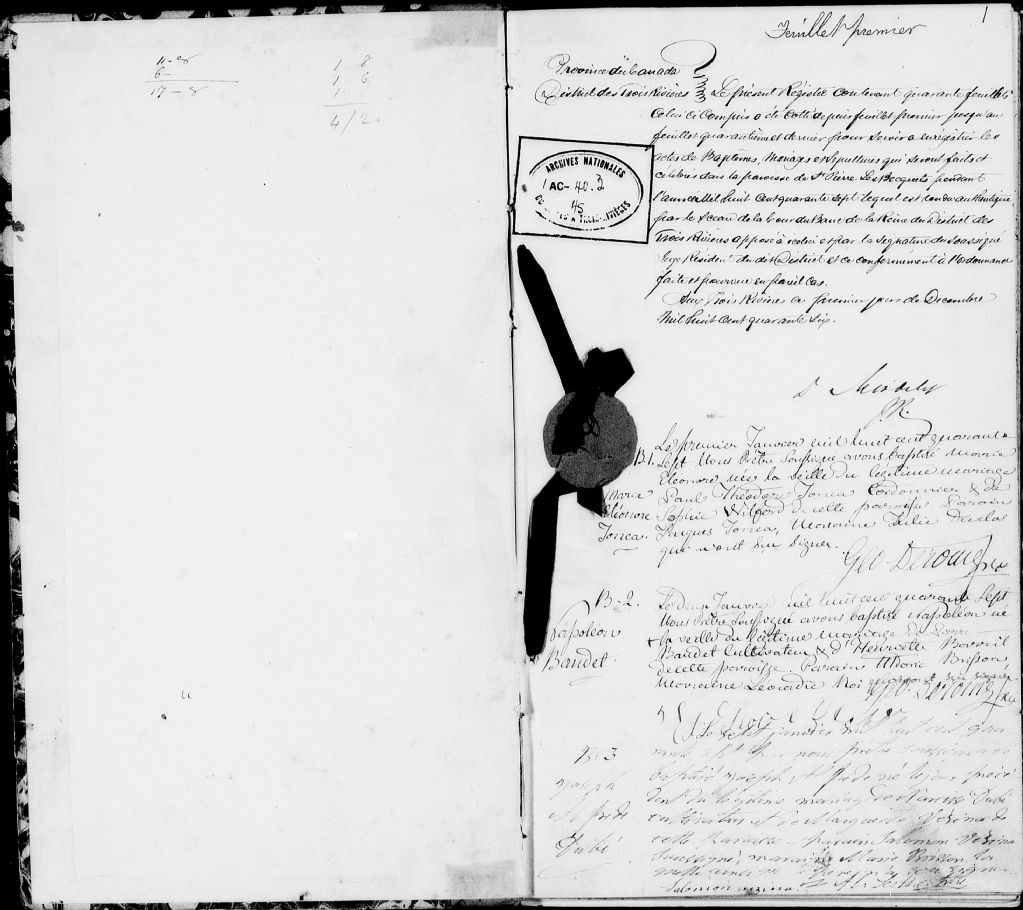 11-8
6-
17-8
1 8
1 6
1
4/2.
1
Feuillet premier
Province du Canada
District des Trois Rivières
Le présent Régistre contenant quarante feuillets
celui ci compris a été cotté depuis feuillet premier jusqu'au
feuillet quarantième et dernier pour servir a enrégistrer les
actes de Baptêmes, Mariages et Sépultures qui seront faits et
célébrés dans la paroisse de St Pierre Les Becquets pendant
l'année Mil huit cent quarante sept lequel est rendu authentique
par le Sceau de la Cour du Banc de la Reine du District des
Trois Rivières apposé à icelui et par la signature du Soussigné
Juge Résident du dit District et ce conformément à l'Ordonnance
faite et pourvue en pareil cas.
Aux Trois Rivières ce premier jour de Decembre
Mil huit cent quarante six.
ARCHIVES NATIONALES
AC- 40.2
45
D Mondelet
J.R.
B. 1.
Marie
Eléonore
Le premier Janvier mil huit cent quarante
Sept Nous Prêtre Soussigné avons baptisé Marie
Eléonore née la veille du légitime mariage
Paul Théodore Cordonnier & de
Sophie de cette paroisse Parrain
Jacques Marraine Julie
qui n'ont su signer.
Geo. Ptre
B-2.
Napoléon
Baudet
Le deux Janvier mil huit cent quarante Sept
Nous Prêtre Soussigné avons baptisé Napoléon né
la veille du légitime mariage de
Baudet Cultivateur & d'Henriette
de cette paroisse. Parrain Brisson
Marraine Léocadie qui n'ont su signer
Ptre
B. 3
Joseph
Alfrède
Dubé
Le sept janvier mil huit cent qua
rante sept par nous prêtre soussigné a été
baptisé Joseph Alfrède né le jour précé
dent du légitime mariage de Narcisse Dubé
cultivateur et de Marguerite Vézina de
cette paroisse parrain Salomon Vézina
soussigné, marraine Marie Brisson la
quelle signer
Salomon vézina